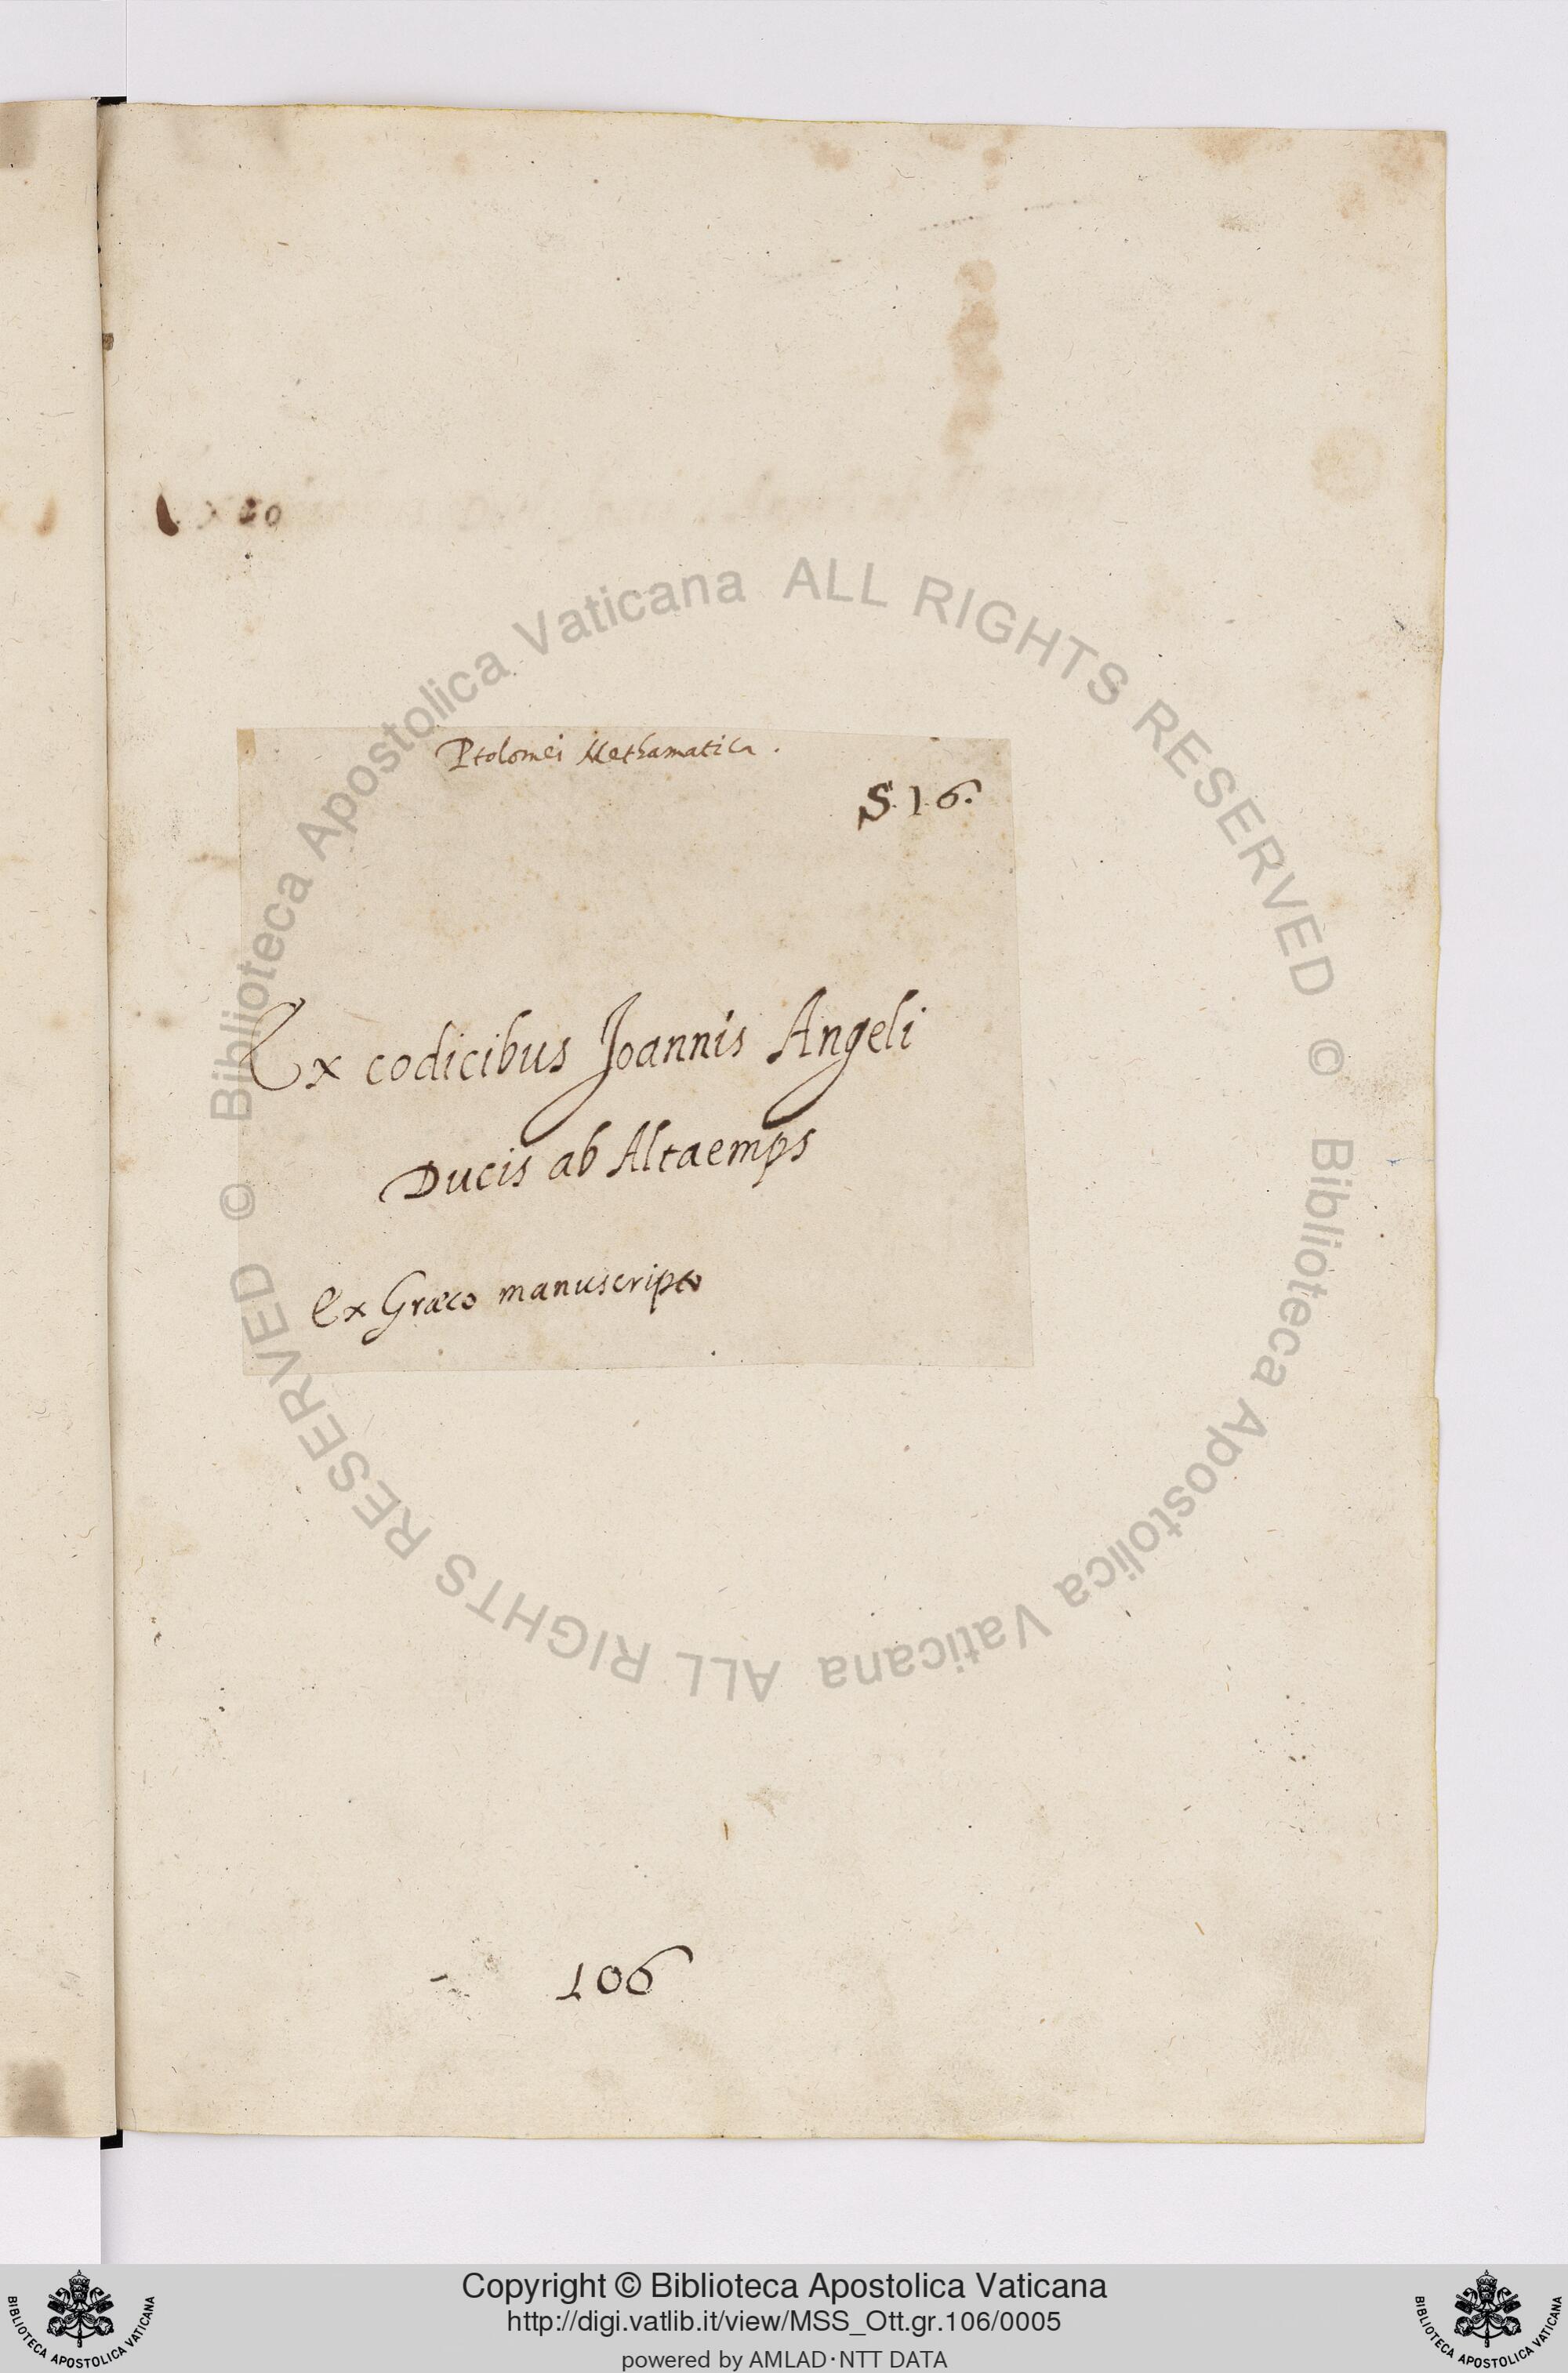 Ptolomei Methamatica.
S. 16.
Ex codicibus Joannis Angeli
Ducis ab Altaemps
Ex Græco manuscripto
106
© Biblioteca Apostolica Vaticana ALL RIGHTS RESERVED © Biblioteca Apostolica Vaticana ALL RIGHTS RESERVED
Copyright © Biblioteca Apostolica Vaticana
http://digi.vatlib.it/view/MSS_Ott.gr.106/0005
powered by AMLAD·NTT DATA
BIBLIOTECA APOSTOLICA VATICANA
BIBLIOTECA APOSTOLICA VATICANA